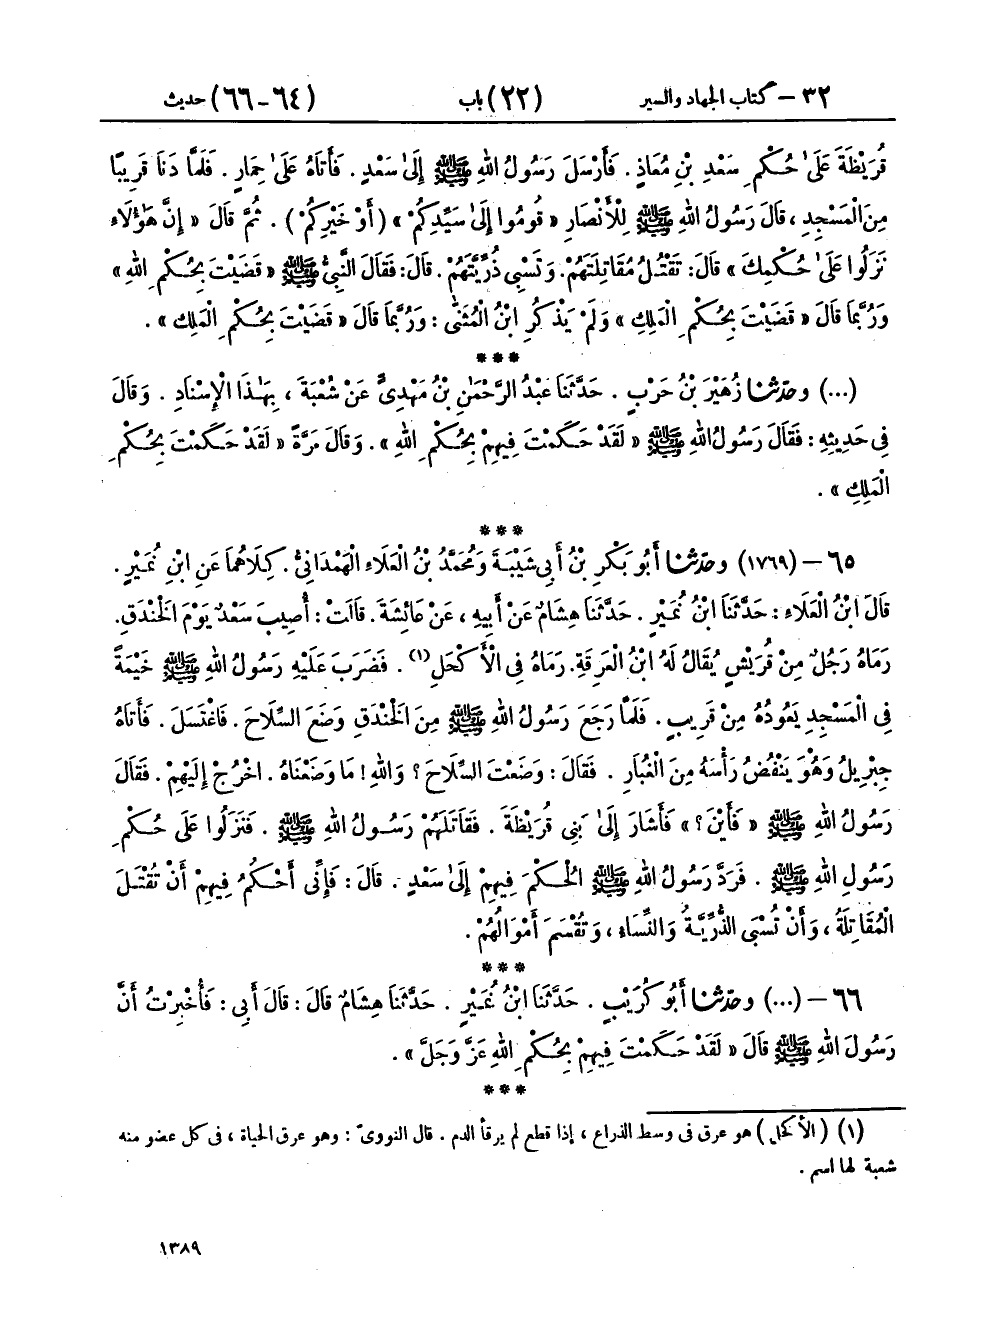 ٣٢ – كتاب الجهاد والسير (٢٢) باب (٦٤ – ٦٦) حديث
قُرَيْظَةَ عَلَىٰ حُكْمِ سَعْدِ بْنِ مُعَاذٍ . فَأَرْسَلَ رَسُولُ اللهِ ﷺ إِلَىٰ سَعْدٍ . فَأَتَاهُ عَلَىٰ حِمَارٍ . فَلَمَّا دَنَا قَرِيبًا
مِنَ الْمَسْجِدِ ، قَالَ رَسُولُ اللهِ ﷺ لِلْأَنْصَارِ « قُومُوا إِلَىٰ سَيِّدِكُمْ » ( أَوْ خَيْرِكُمْ ) . ثُمَّ قَالَ « إِنَّ هَٰؤُلَاءِ
نَزَلُوا عَلَىٰ حُكْمِكَ » قَالَ : تَقْتُلُ مُقَاتِلَتَهُمْ . وَتَسْبِي ذُرِّيَّتَهُمْ . قَالَ : فَقَالَ النَّبِيُّ ﷺ « قَضَيْتَ بِحُكْمِ اللهِ »
وَرُبَّمَا قَالَ « قَضَيْتَ بِحُكْمِ الْمَلِكِ » وَلَمْ يَذْكُرِ ابْنُ الْمُثَنَّىٰ : وَرُبَّمَا قَالَ « قَضَيْتَ بِحُكْمِ الْمَلِكِ » .
***
(...) وحدّثنا زُهَيْرُ بْنُ حَرْبٍ . حَدَّثَنَا عَبْدُ الرَّحْمَٰنِ بْنُ مَهْدِيٍّ عَنْ شُعْبَةَ ، بِهَٰذَا الْإِسْنَادِ . وَقَالَ
فِي حَدِيثِهِ : فَقَالَ رَسُولُ اللهِ ﷺ « لَقَدْ حَكَمْتَ فِيهِمْ بِحُكْمِ اللهِ » . وَقَالَ مَرَّةً « لَقَدْ حَكَمْتَ بِحُكْمِ
الْمَلِكِ » .
***
٦٥ – (١٧٦٩) وحدّثنا أَبُو بَكْرِ بْنُ أَبِي شَيْبَةَ وَمُحَمَّدُ بْنُ الْعَلَاءِ الْهَمْدَانِيُّ . كِلَاهُمَا عَنِ ابْنِ نُمَيْرٍ .
قَالَ ابْنُ الْعَلَاءِ : حَدَّثَنَا ابْنُ نُمَيْرٍ . حَدَّثَنَا هِشَامٌ عَنْ أَبِيهِ ، عَنْ عَائِشَةَ . قَالَتْ : أُصِيبَ سَعْدٌ يَوْمَ الْخَنْدَقِ .
رَمَاهُ رَجُلٌ مِنْ قُرَيْشٍ يُقَالُ لَهُ ابْنُ الْعَرِقَةِ . رَمَاهُ فِي الْأَكْحَلِ (١) . فَضَرَبَ عَلَيْهِ رَسُولُ اللهِ ﷺ خَيْمَةً
فِي الْمَسْجِدِ يَعُودُهُ مِنْ قَرِيبٍ . فَلَمَّا رَجَعَ رَسُولُ اللهِ ﷺ مِنَ الْخَنْدَقِ وَضَعَ السِّلَاحَ . فَاغْتَسَلَ . فَأَتَاهُ
جِبْرِيلُ وَهُوَ يَنْفُضُ رَأْسَهُ مِنَ الْغُبَارِ . فَقَالَ : وَضَعْتَ السِّلَاحَ ؟ وَاللهِ ! مَا وَضَعْنَاهُ . اخْرُجْ إِلَيْهِمْ . فَقَالَ
رَسُولُ اللهِ ﷺ « فَأَيْنَ ؟ » فَأَشَارَ إِلَىٰ بَنِي قُرَيْظَةَ . فَقَاتَلَهُمْ رَسُولُ اللهِ ﷺ . فَنَزَلُوا عَلَىٰ حُكْمِ
رَسُولِ اللهِ ﷺ . فَرَدَّ رَسُولُ اللهِ ﷺ الْحُكْمَ فِيهِمْ إِلَىٰ سَعْدٍ . قَالَ : فَإِنِّي أَحْكُمُ فِيهِمْ أَنْ تُقْتَلَ
الْمُقَاتِلَةُ ، وَأَنْ تُسْبَى الذُّرِّيَّةُ وَالنِّسَاءُ ، وَتُقْسَمَ أَمْوَالُهُمْ .
***
٦٦ – (...) وحدّثنا أَبُو كُرَيْبٍ . حَدَّثَنَا ابْنُ نُمَيْرٍ . حَدَّثَنَا هِشَامٌ قَالَ : قَالَ أَبِي : فَأُخْبِرْتُ أَنَّ
رَسُولَ اللهِ ﷺ قَالَ « لَقَدْ حَكَمْتَ فِيهِمْ بِحُكْمِ اللهِ عَزَّ وَجَلَّ » .
***
(١) ( الأكحل ) هو عرق في وسط الذراع ، إذا قطع لم يرقأ الدم . قال النووي : وهو عرق الحياة ، في كل عضو منه
شعبة لها اسم .
١٣٨٩